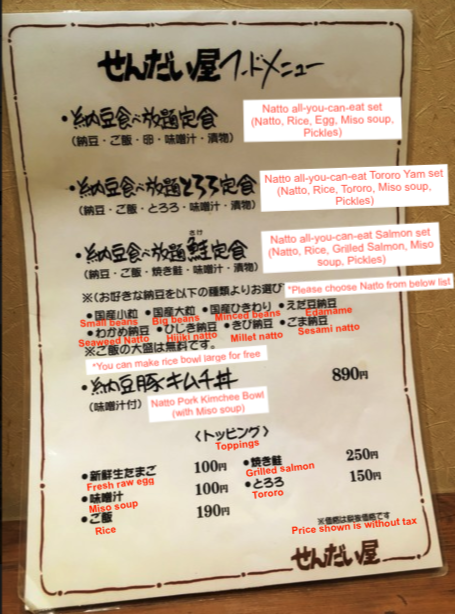 せんだい屋フードメニュー
・納豆食べ放題定食
Natto all-you-can-eat set
(Natto, Rice, Egg, Miso soup,
Pickles)
(納豆・ご飯・卵・味噌汁・漬物)
・納豆食べ放題とろろ定食
Natto all-you-can-eat Tororo Yam set
(Natto, Rice, Tororo, Miso soup,
Pickles)
(納豆・ご飯・とろろ・味噌汁・漬物)
さけ
・納豆食べ放題鮭定食
Natto all-you-can-eat Salmon set
(Natto, Rice, Grilled Salmon, Miso
soup, Pickles)
(納豆・ご飯・焼き鮭・味噌汁・漬物)
※(お好きな納豆を以下の種類よりお選び
*Please choose Natto from below list
●国産小粒 ●国産大粒 ●国産ひきわり ●えだ豆納豆
Small beans Big beans Minced beans Edamame
●わかめ納豆 ●ひじき納豆 ●きび納豆 ●ごま納豆
Seaweed Natto Hijiki natto Millet natto Sesami natto
※ご飯の大盛は無料です。
*You can make rice bowl large for free
・納豆豚キムチ丼 890円
(味噌汁付)
Natto Pork Kimchee Bowl
(with Miso soup)
〈トッピング〉
Toppings
●新鮮生たまご 100円 ●焼き鮭 250円
Fresh raw egg Grilled salmon
●味噌汁 100円 ●とろろ 150円
Miso soup Tororo
●ご飯 190円
Rice
※価格は税抜価格です
Price shown is without tax
せんだい屋